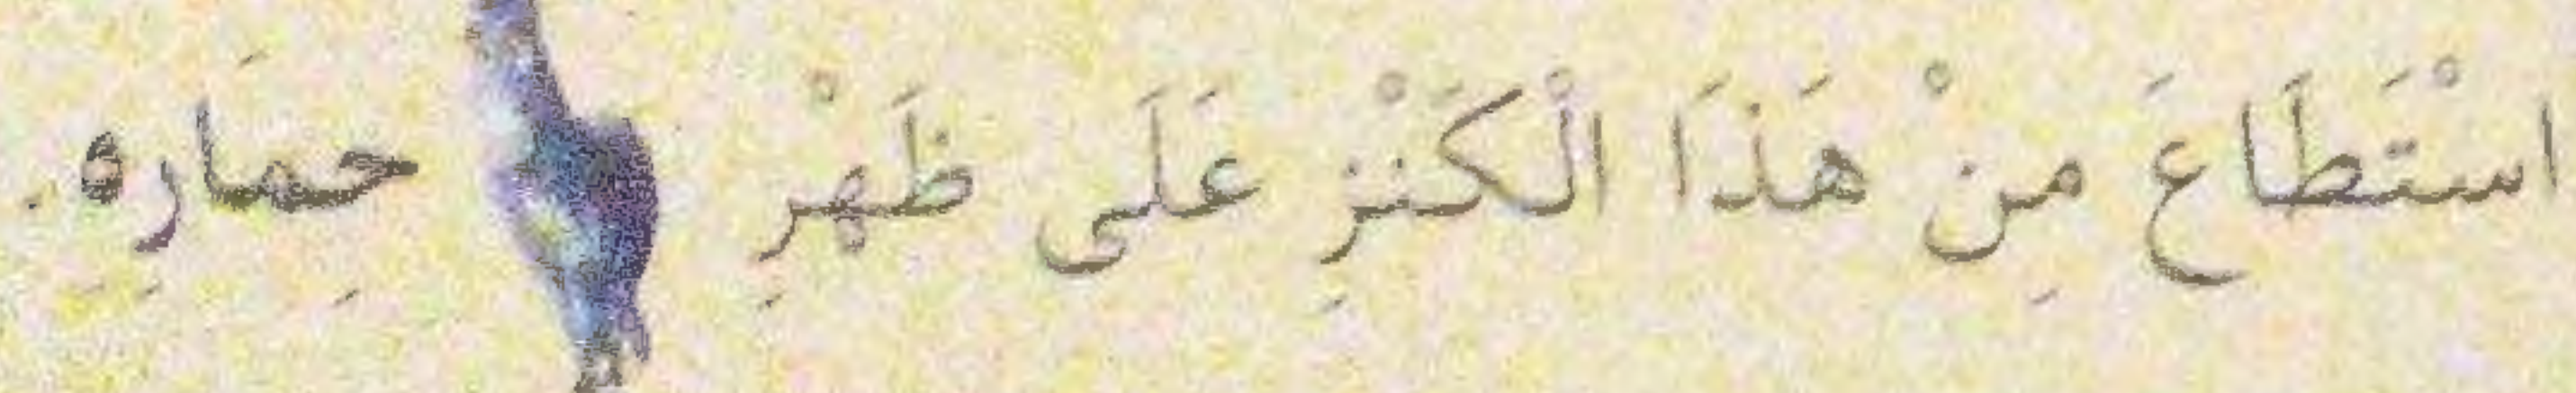 اسْتَطَاعَ مِنْ هَذَا الْكَنْزِ عَلَى ظَهْرِ حِمَارِهِ.